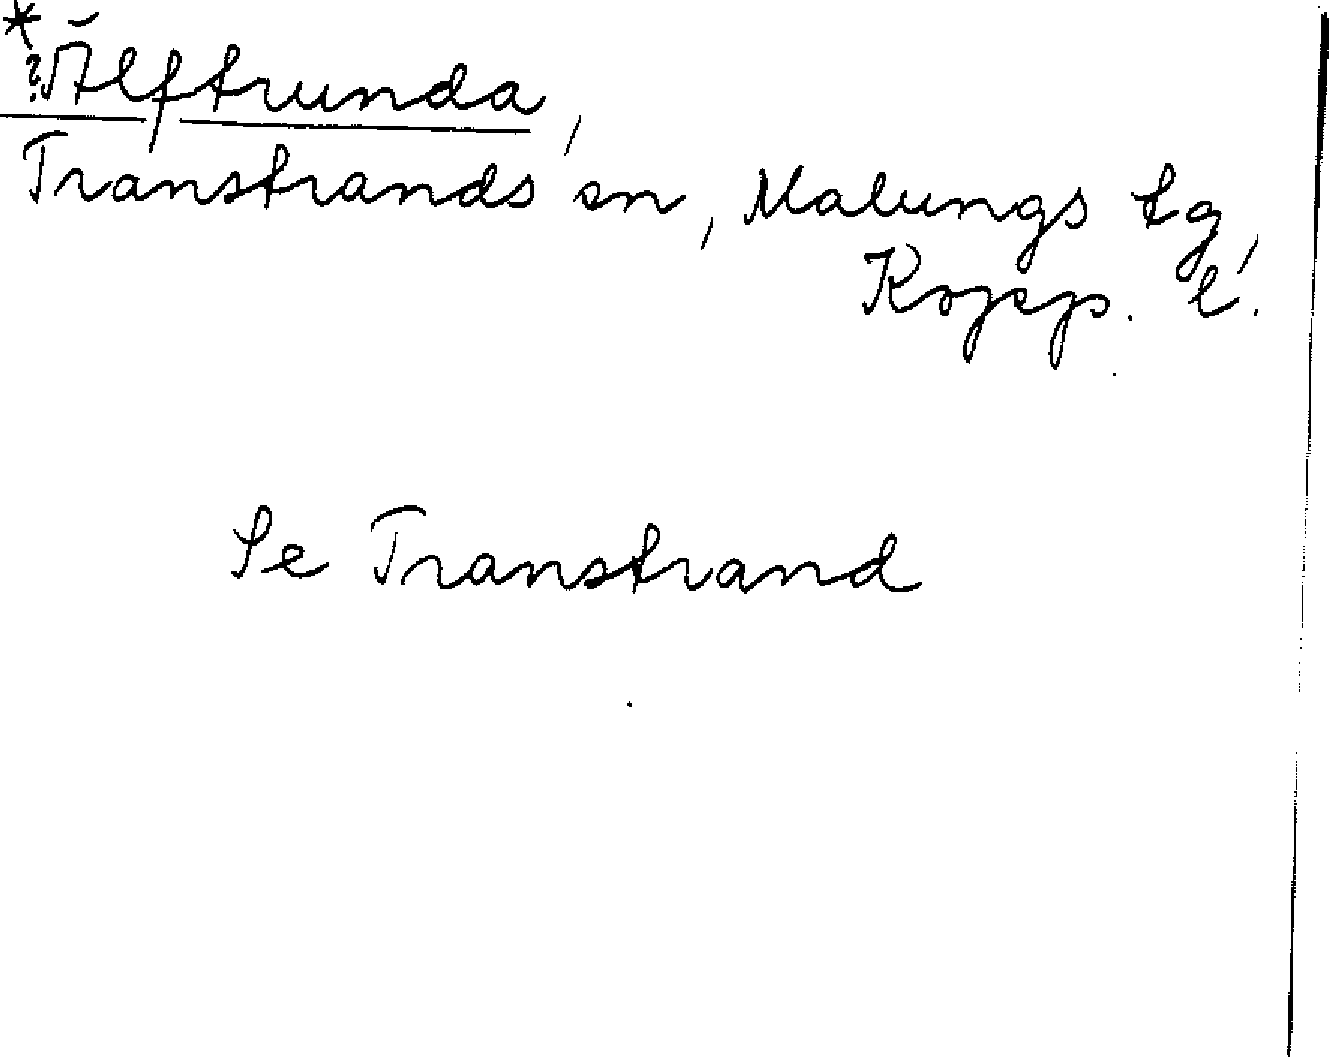 *
?Älftrunda,
Transtrands sn, Malungs tg,
Kopp. l.
Se Transtrand